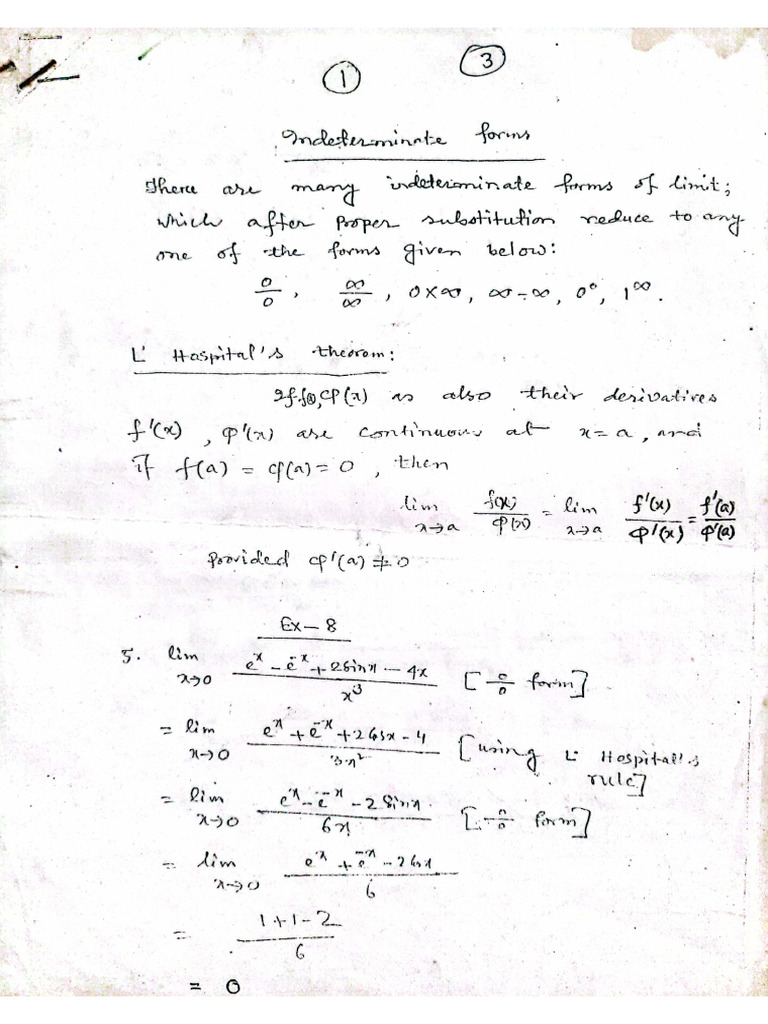 ① ③
Indeterminate forms
There are many indeterminate forms of limit;
which after proper substitution reduce to any
one of the forms given below:
0/0, ∞/∞, 0×∞, ∞-∞, 0⁰, 1^∞.
L' Haspital's theorom:
If f(x), φ(x) as also their derivatives
f'(x), φ'(x) are continuous at x=a, and
if f(a) = φ(a) = 0, then
lim x→a f(x)/φ(x) = lim x→a f'(x)/φ'(x) = f'(a)/φ'(a)
Provided φ'(a) ≠ 0
Ex-8
5. lim x→0 (e^x - e^-x + 2sinx - 4x)/x³ [0/0 form]
= lim x→0 (e^x + e^-x + 2cosx - 4)/3x² [using L' Hospital's
rule]
= lim x→0 (e^x - e^-x - 2sinx)/6x [0/0 form]
= lim x→0 (e^x + e^-x - 2cosx)/6
= (1+1-2)/6
= 0